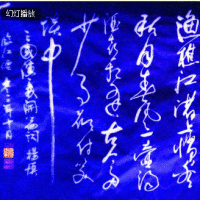 幻灯播放
渔樵江渚上惯看
秋月春风一壶浊
酒喜相逢古今多
少事都付笑
谈中
三国演义开篇词 杨慎
临江仙